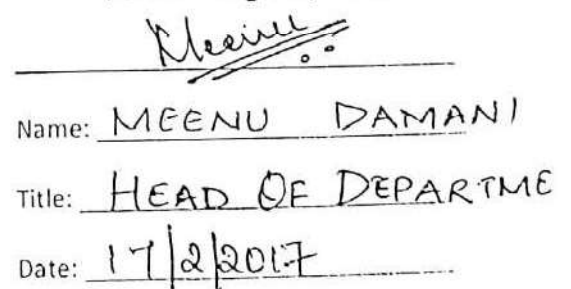 Meenu
Name: MEENU DAMANI
Title: HEAD OF DEPARTME
Date: 17/2/2017